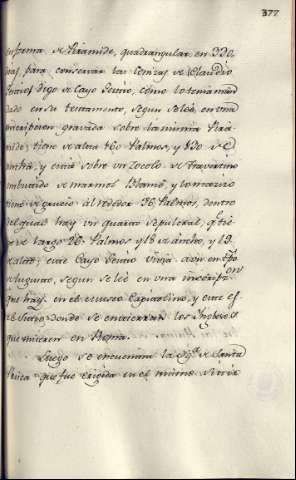 377
en forma de Piramide, quadrangular en 330.
dias, para conservar las Cenizas de Claudio
digo de Cayo Sextio, como lo tenia man
dado en su testamento, segun se leè, en una
inscripcion gravada sobre la misma Pirà
mide: tiene de altura 160 Palmos, y 130 de
ancho, y està sobre un Zocolo de Travertino
embutido de marmol Blanco, y lo mazizo
tiene de grueso al rededor 36 Palmos, dentro
del qual hay un quarto sepulcral, q.e tie
ne de largo 26 Palmos y 18 de ancho, y 19.
de alto: este Cayo Sextio vivia aun en tpõ
de Augusto, segun se leè en una inscripon
que hay en el museo Capitolino, y este es
el sitio donde se entierran los Ingleses
que mueren en Roma.
Luego se encuentra la Ygª de Santa
Prisca que fue erigida en el mismo sitio